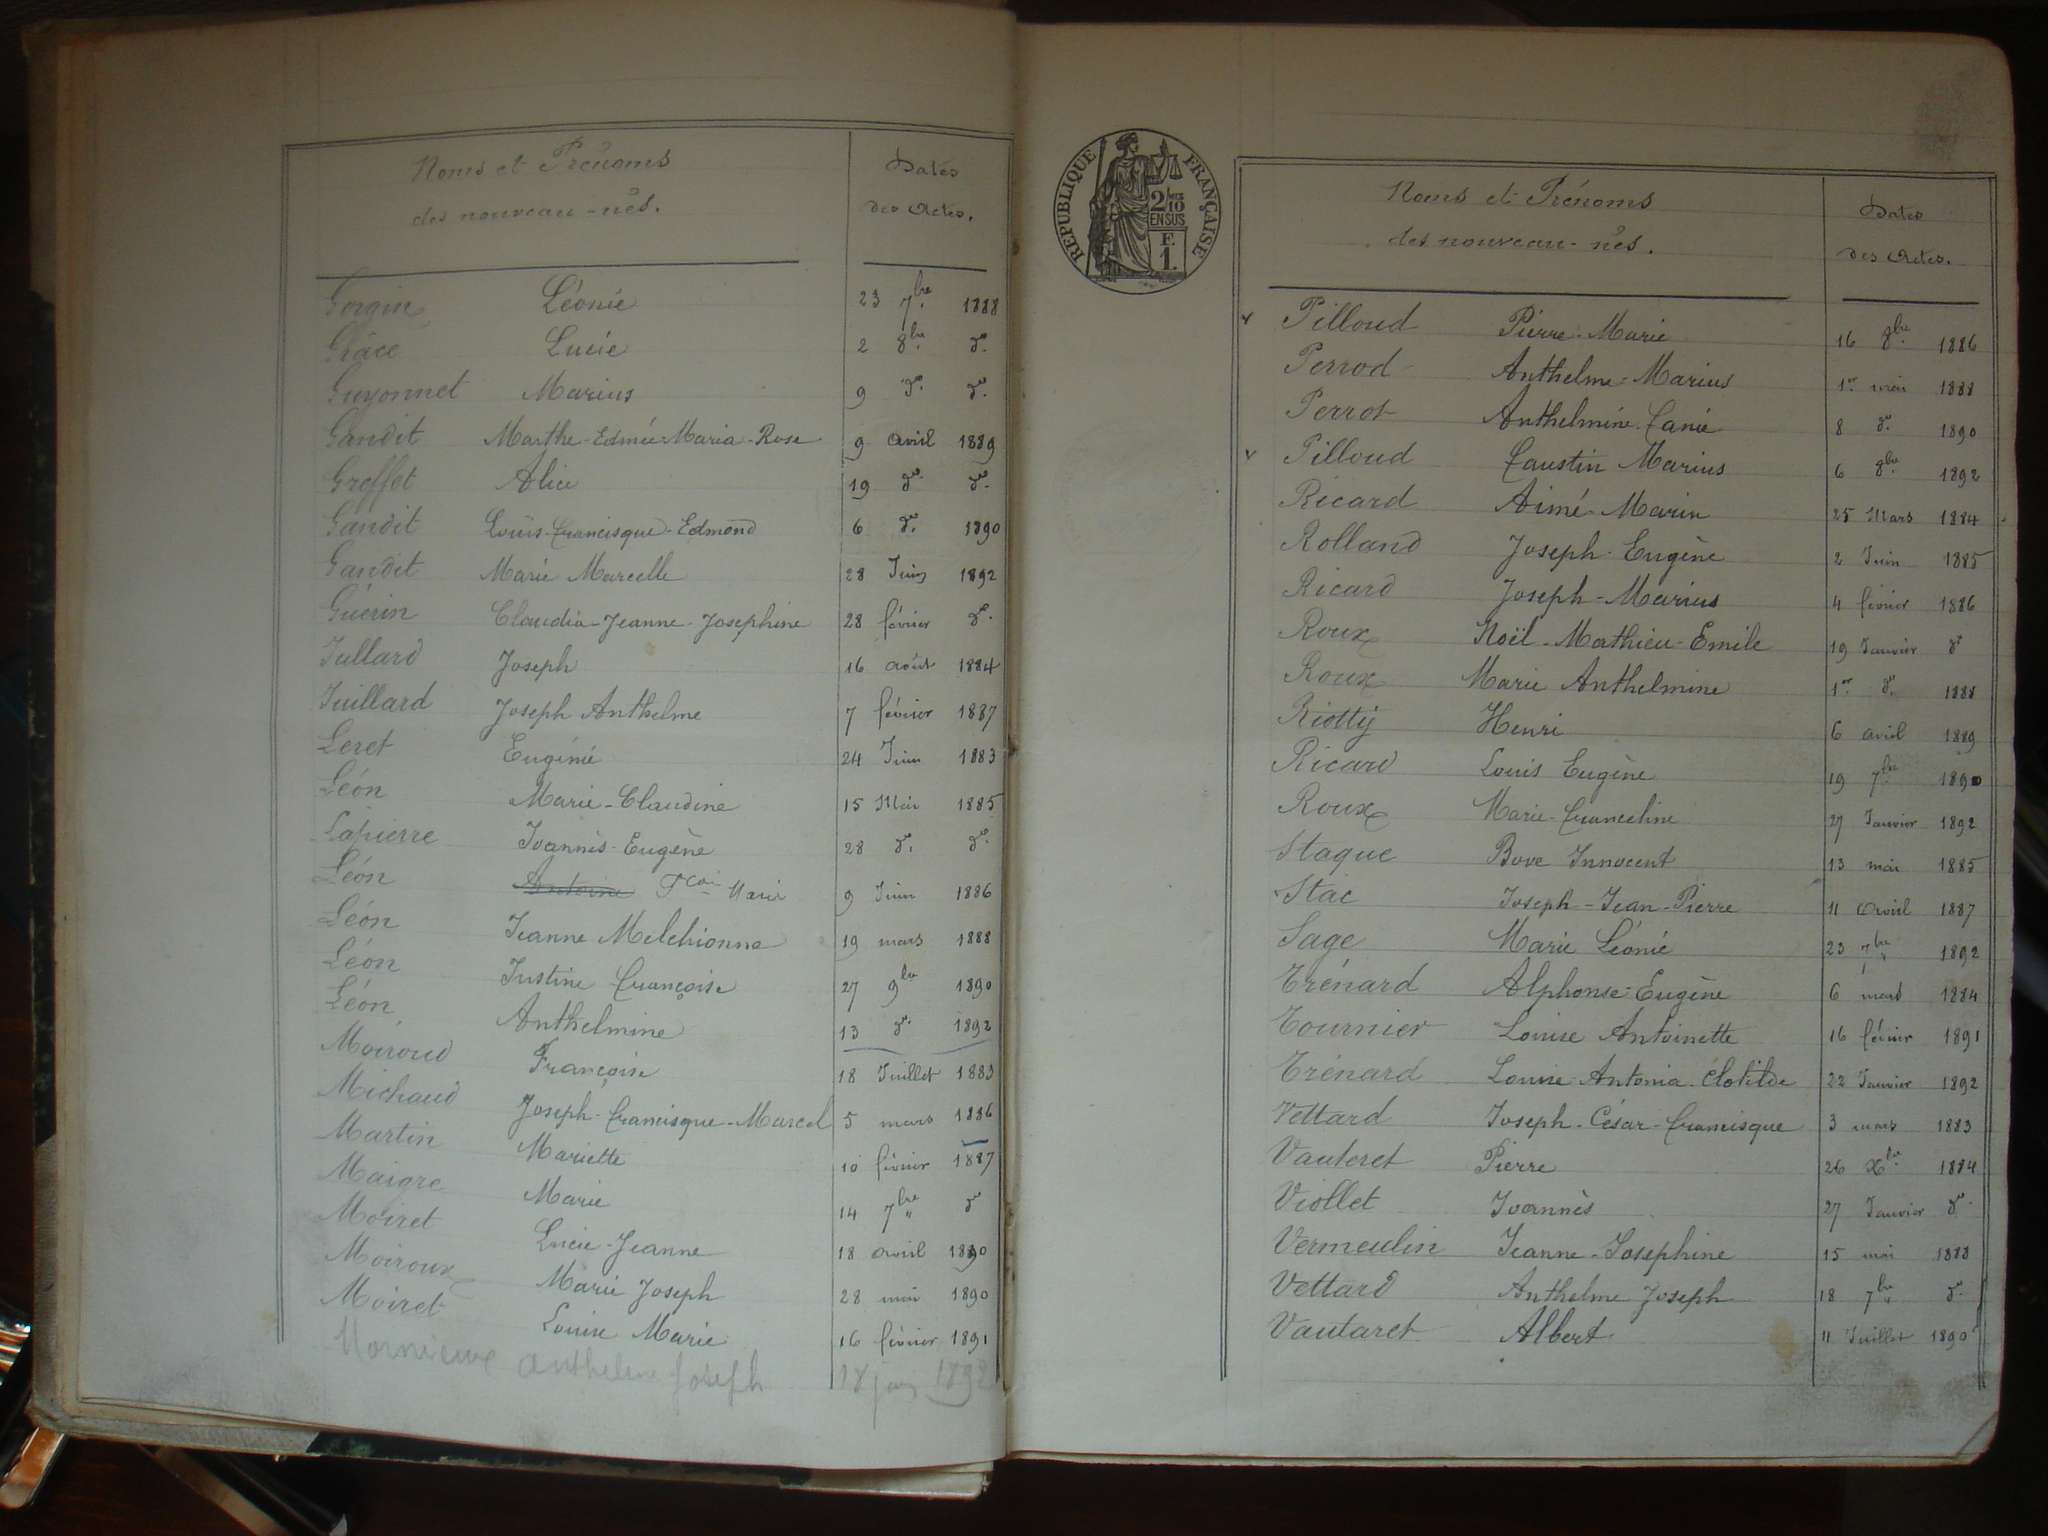 Noms et Prénoms
des nouveau-nés.
Dates
des Actes.
Gorgin Léonie 23 7bre 1888
Grâce Lucie 2 8bre do
Guyonnet Marius 9 do do
Gandit Marthe-Edmée Maria-Rose 9 avril 1889
Greffet Alice 19 do do
Gandit Louis-Francisque-Edmond 6 do 1890
Gandit Marie Marcelle 28 Juin 1892
Guérin Claudia-Jeanne-Josephine 28 février do
Jullard Joseph 16 août 1884
Juillard Joseph Anthelme 7 février 1887
Leret Eugénie 24 Juin 1883
Léon Marie-Claudine 15 Mai 1885
Lapierre Joannès-Eugène 28 do do
Léon Antoine Fcois Marie 9 Juin 1886
Léon Jeanne Melchionne 19 mars 1888
Léon Justine Françoise 27 9bre 1890
Léon Anthelmine 13 do 1892
Moiroud Françoise 18 Juillet 1883
Michaud Joseph-Francisque-Marcel 5 mars 1886
Martin Mariette 10 février 1887
Maigre Marie 14 7bre do
Moiret Lucie-Jeanne 18 avril 1890
Moiroux Marie Joseph 28 mai 1890
Moiret Louise Marie 16 février 1891
Anthelme Joseph 18 1892
RÉPUBLIQUE FRANÇAISE
2/10
EN SUS
F.
1.
Noms et Prénoms
des nouveau-nés.
Dates
des Actes.
Pilloud Pierre-Marie 16 8bre 1886
Perrod Anthelme-Marius 1er mai 1888
Perrot Anthelmine-Fanie 8 do 1890
Pilloud Faustin Marius 6 8bre 1892
Ricard Aimé-Marin 25 Mars 1884
Rolland Joseph-Eugène 2 Juin 1885
Ricard Joseph-Marius 4 février 1886
Roux Noël-Mathieu-Emile 19 Janvier do
Roux Marie Anthelmine 1er do 1888
Riotty Henri 6 avril 1889
Ricard Louis Eugène 19 7bre 1890
Roux Marie-Franceline 27 Janvier 1892
Staque Bove Innocent 13 mai 1885
Stac Joseph-Jean-Pierre 11 Avril 1887
Sage Marie Léonie 23 7bre 1892
Trénard Alphonse-Eugène 6 mars 1884
Tournier Louise Antoinette 16 février 1891
Trénard Louise-Antonia-Clotilde 22 Janvier 1892
Vettard Joseph-César-Francisque 3 mars 1883
Vauteret Pierre 26 Xbre 1884
Viollet Joannès 27 Janvier do
Vermeulin Jeanne-Josephine 15 mai 1888
Vettard Anthelme Joseph 18 7bre do
Vautaret Albert 11 Juillet 1890